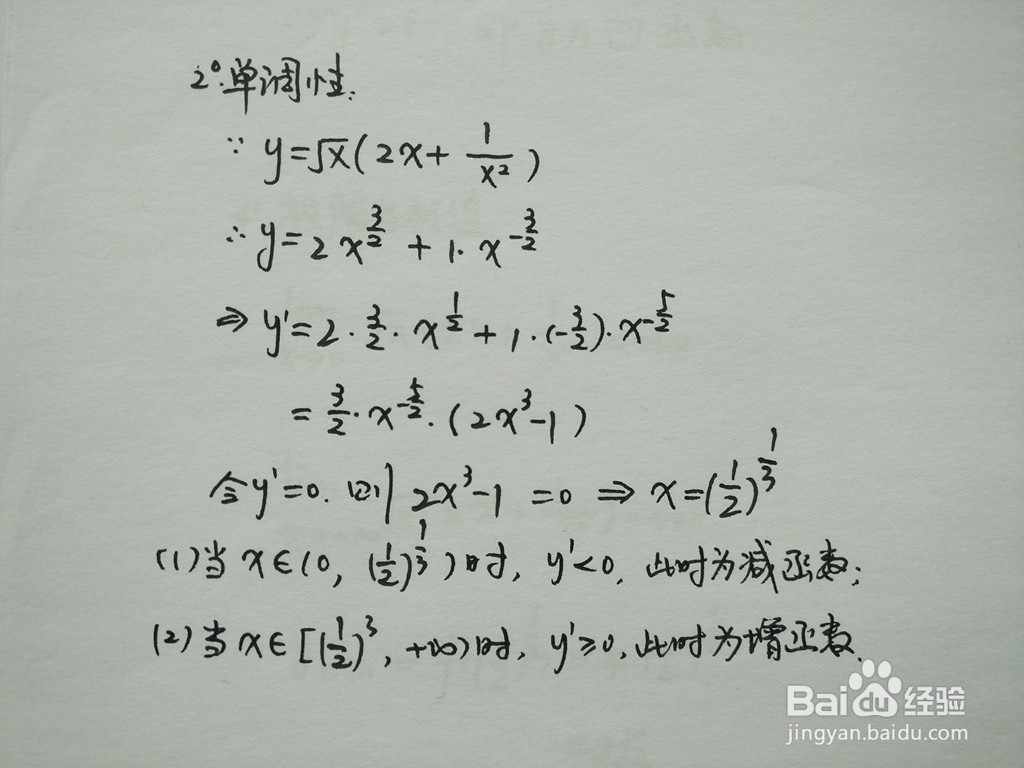 2°.单调性:
∵ y=√x(2x+1/x²)
∴ y=2x^(3/2)+1·x^(-3/2)
⇒ y'=2·3/2·x^(1/2)+1·(-3/2)·x^(-5/2)
=3/2·x^(-5/2)·(2x³-1)
令y'=0.则 2x³-1=0 ⇒ x=(1/2)^(1/3)
(1)当x∈(0, (1/2)^(1/3))时, y'<0, 此时为减函数;
(2)当x∈[(1/2)^3, +∞)时, y'≥0,此时为增函数.
Baidu经验
jingyan.baidu.com